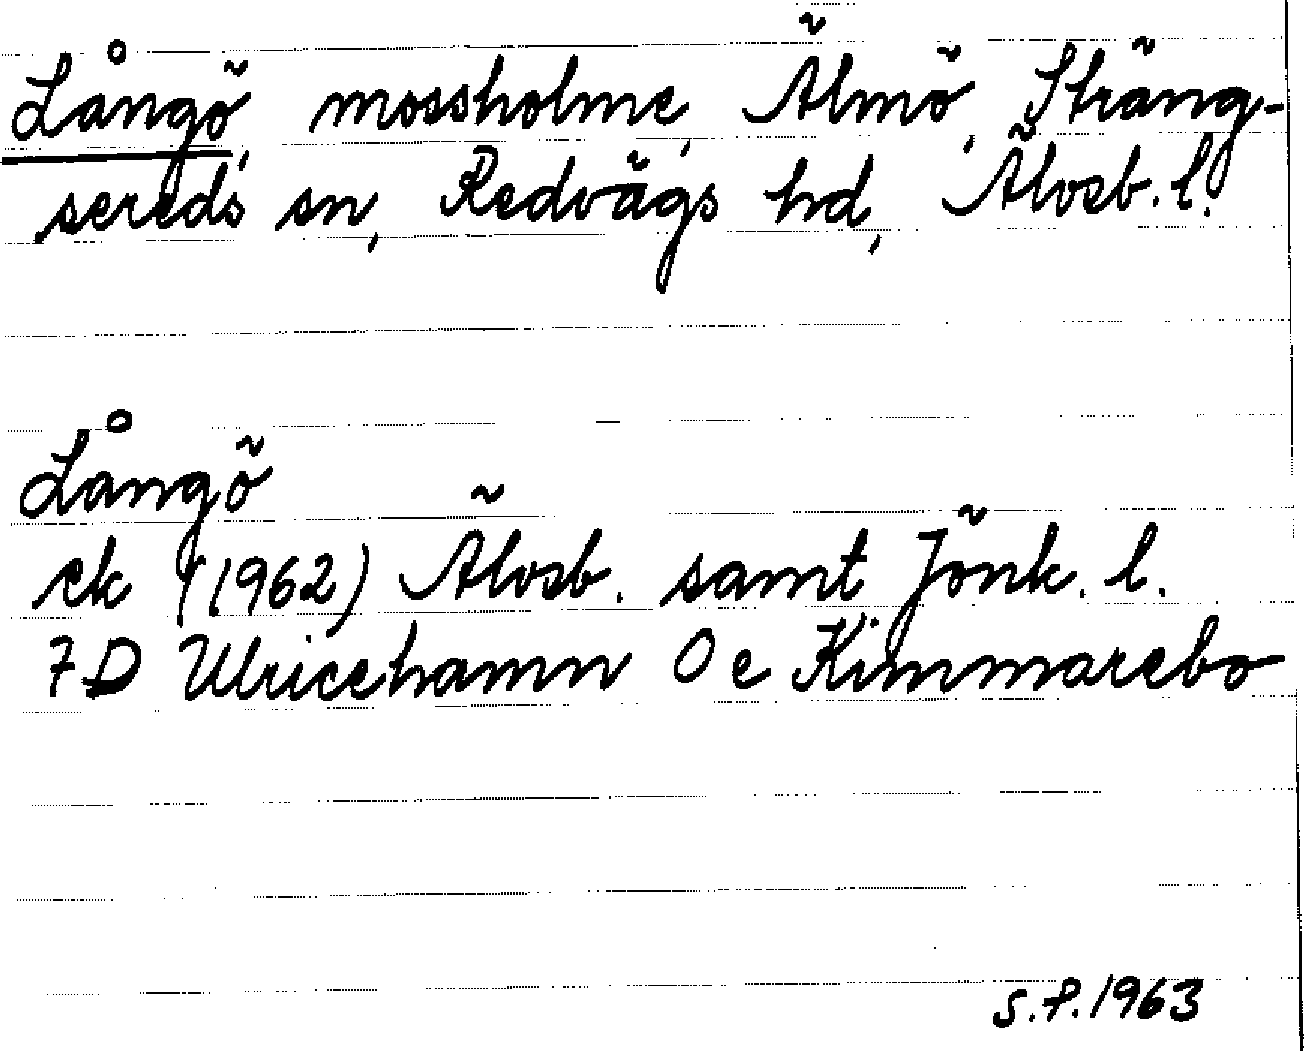 Långö, mossholme, Älmö, Sträng-
sereds sn, Redvägs hd, Älvsb. l.
Långö
ek (1962) Älvsb. samt Jönk. l.
7D Ulricehamn 0e Kimmarebo
S.P. 1963